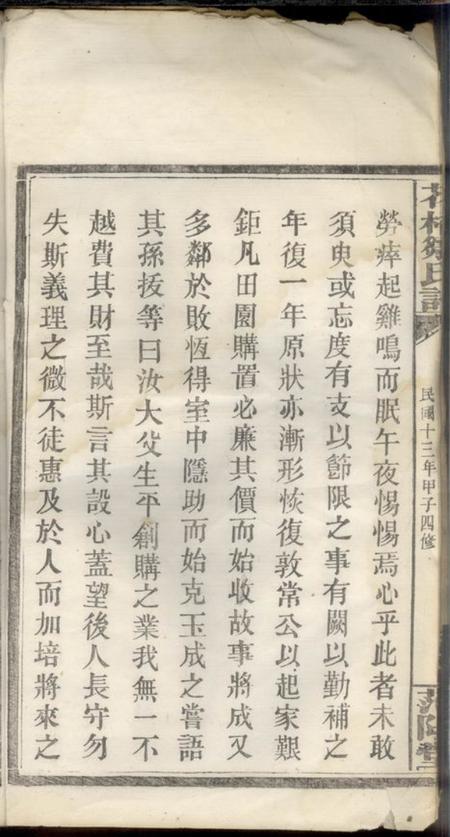 勞瘁起雞鳴而眠午夜惕惕焉心乎此者未敢
須臾或忘度有支以節限之事有闕以勤補之
年復一年原狀亦漸形恢復敦常公以起家艱
鉅凡田園購置必廉其價而始收故事將成又
多鄰於敗恆得室中隱助而始克玉成之嘗語
其孫扳等曰汝大父生平創購之業我無一不
越費其財至哉斯言其設心蓋望後人長守勿
失斯義理之微不徒惠及於人而加培將來之
民國十三年甲子四修